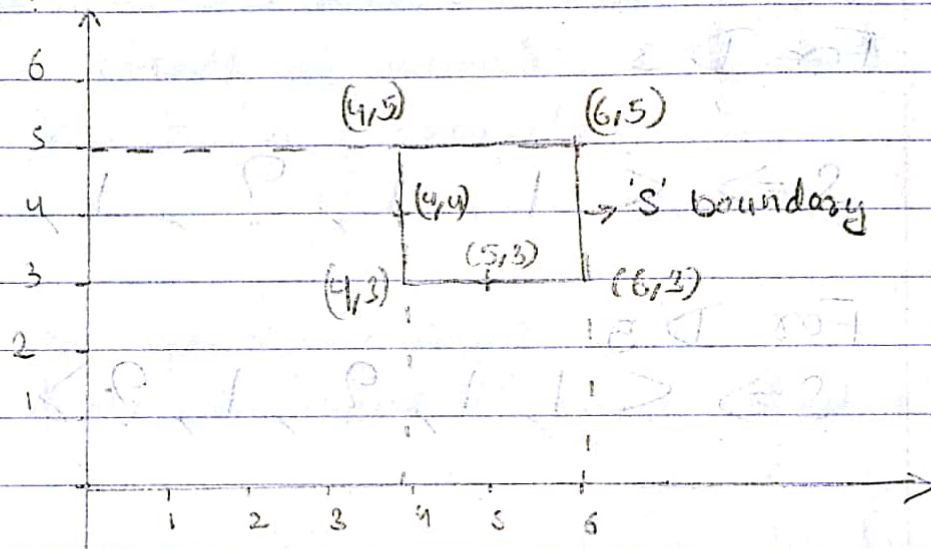 6
(4,5) (6,5)
5
4 (4,4) 'S' boundary
(5,3)
3 (4,3) (6,3)
2
1
1 2 3 4 5 6